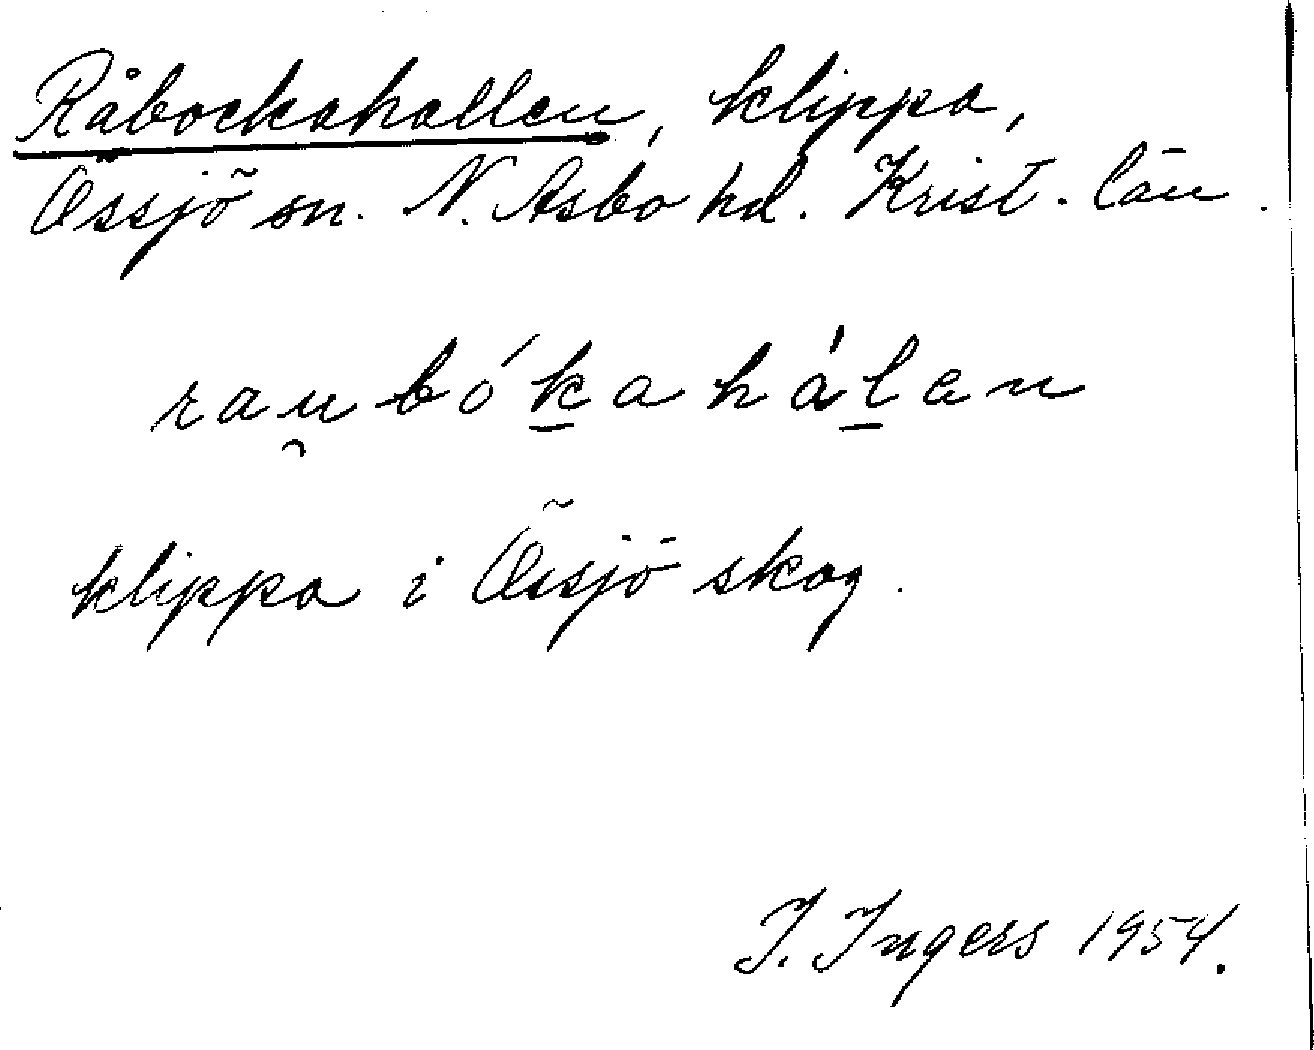 Råbockahallen, klippa,
Össjö sn. N. Åsbo hd. Krist. län.
rau̯bók̲ahál̲en
klippa i Össjö skog.
I. Ingers 1954.